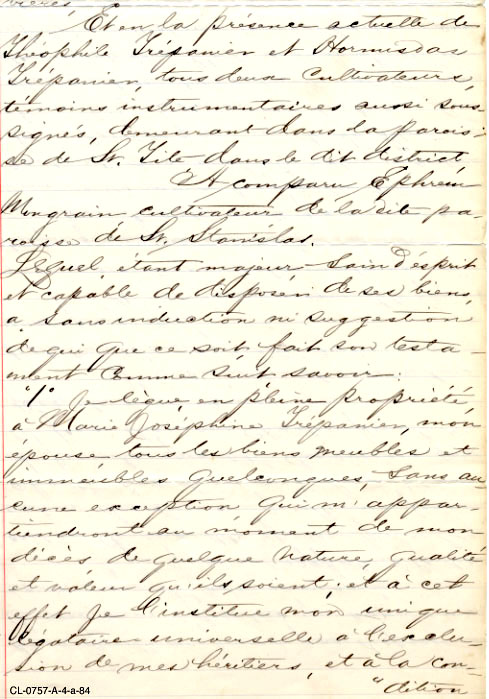 Et en la présence actuelle de
Théophile Trépanier et Hormisdas
Trépanier, tous deux cultivateurs,
témoins instrumentaires aussi sous-
signés, demeurant dans la parois-
se de St. Tite dans le dit district
A comparu Ephrem
Mongrain cultivateur de la dite pa-
roisse de St. Stanislas.
Lequel, étant majeur sain d'ésprit
et capable de disposér de ses biens,
a sans induction ni suggestion
de qui que ce soit fait son testa-
ment comme suit savoir:
"1° Je lègue en pleine propriété
à Marie Joséphine Trépanier, mon
épouse tous les biens meubles et
immeubles quelconques, sans au-
cune exception qui m'appar-
tiendront au moment de mon
décès de quelque nature, qualité
et valeur qu'ils soient; et à cet
effet je l'institue mon unique
légataire universelle à l'exclu-
sion de mes héritiers, et à la con-
"dition
CL-0757-A-4-a-84